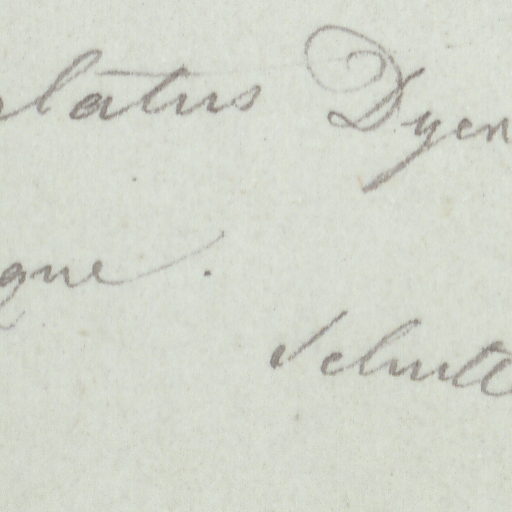 latus Dyer
que.
Schutt